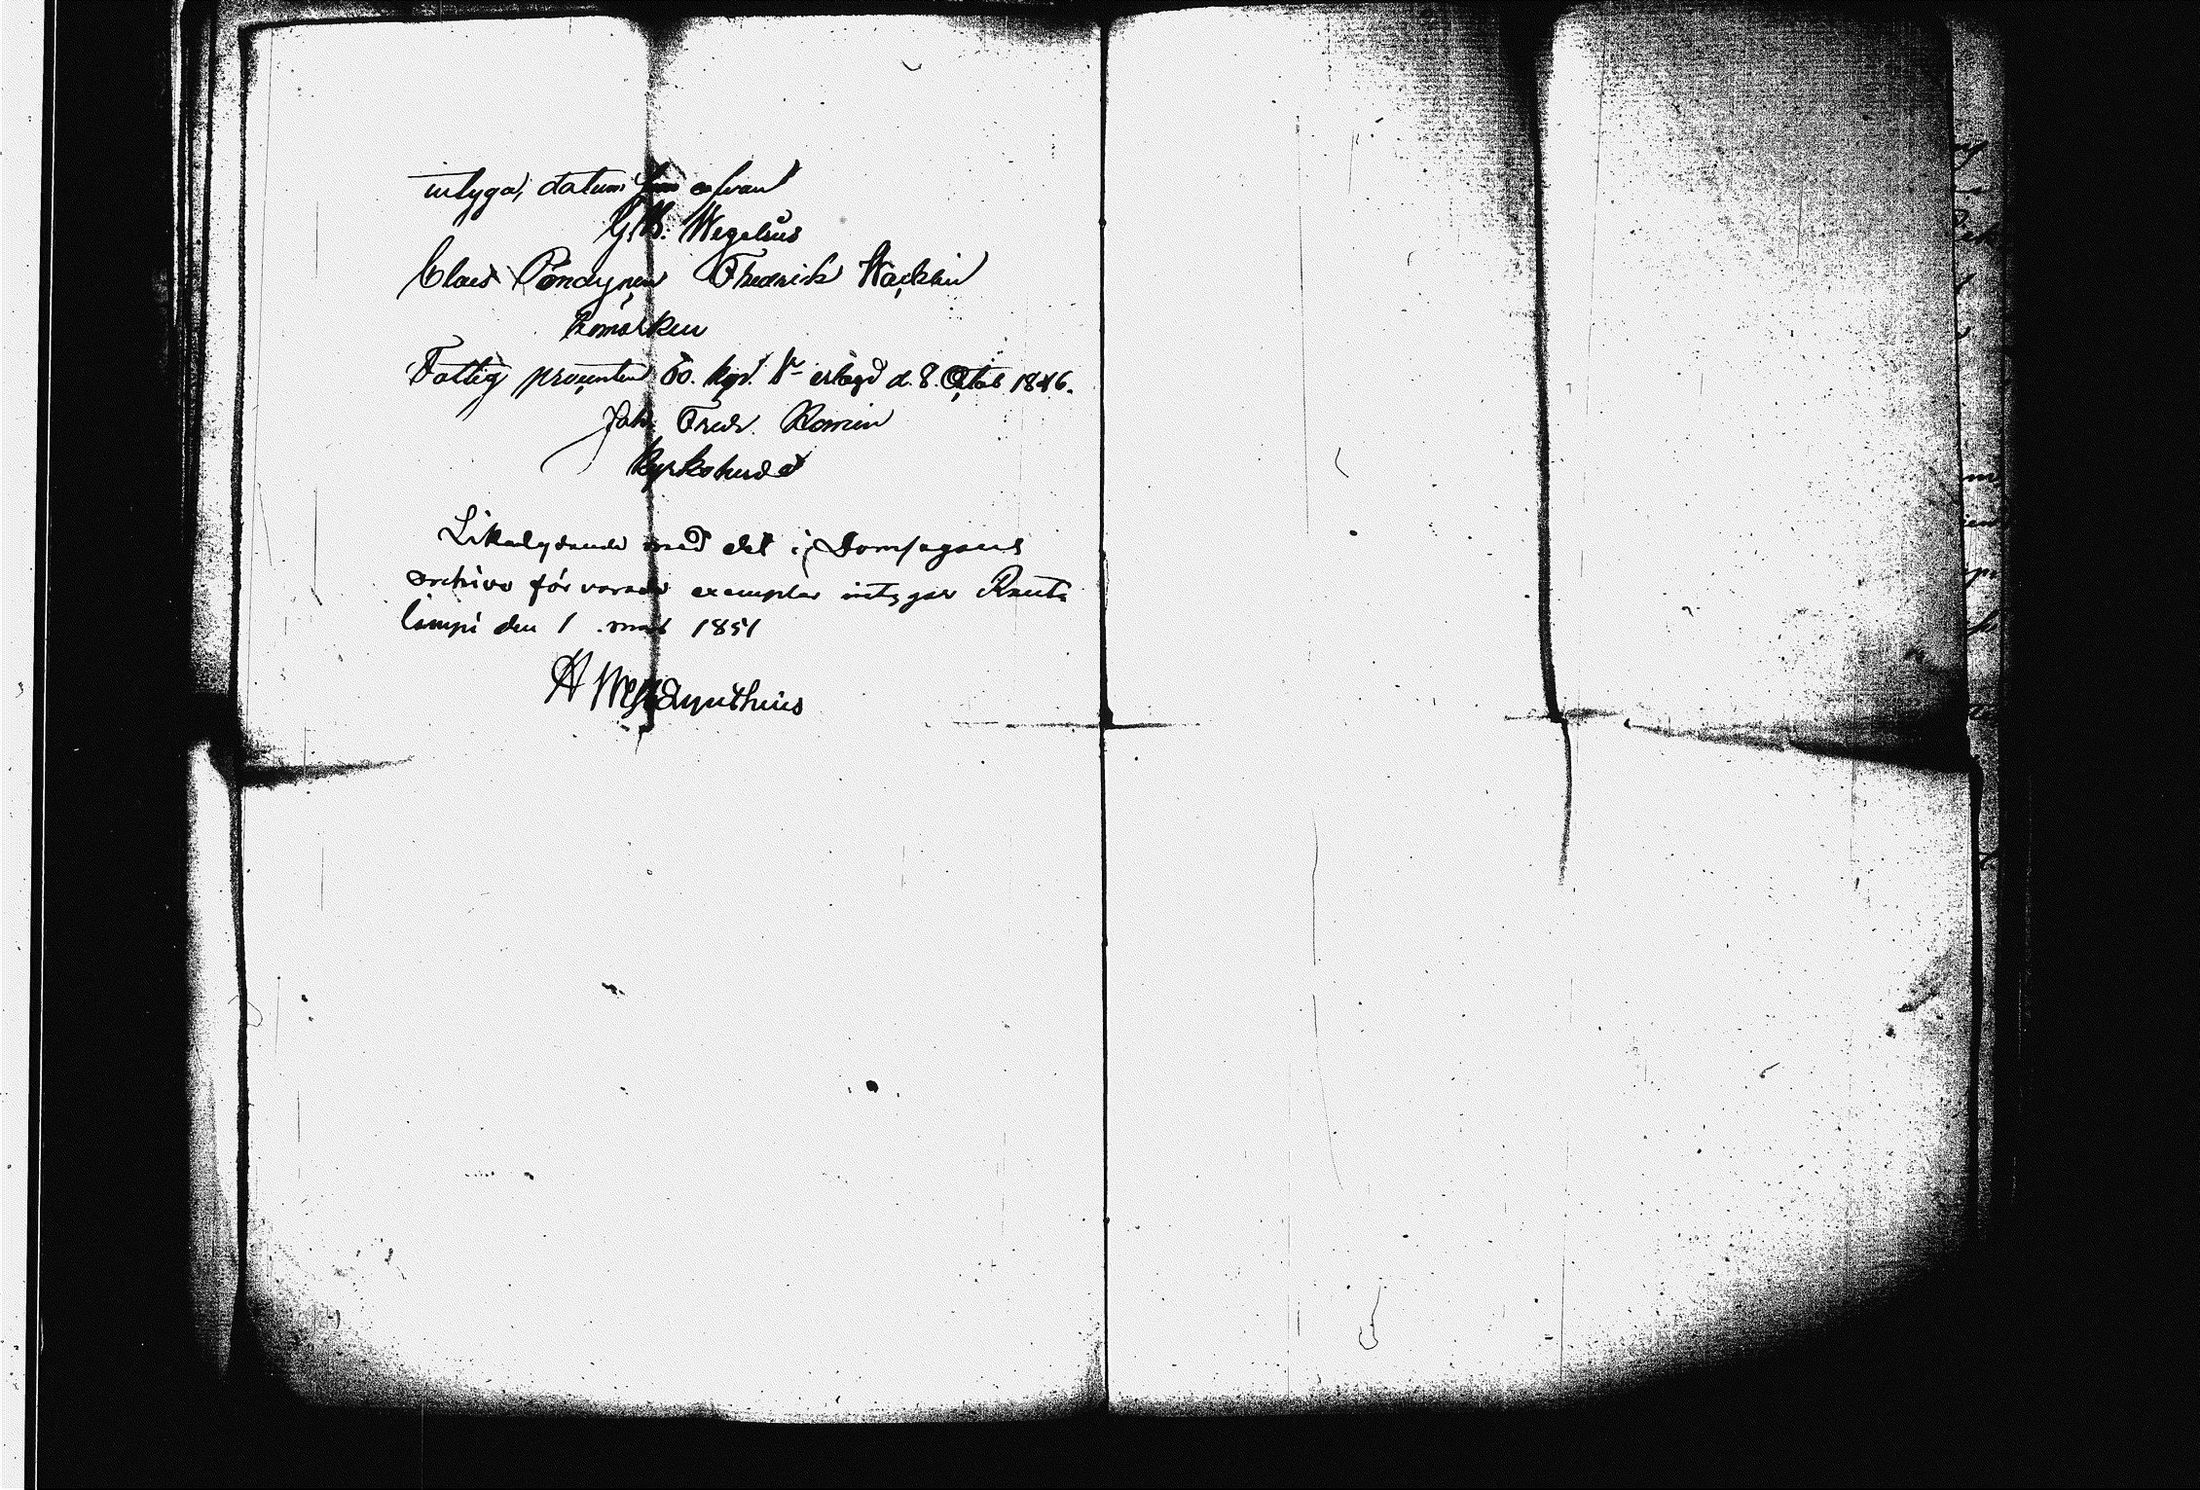 intyga, datum som ofvan
G. W. Wegelius
Claes Pöndynen Fredrick Wacklin
Bomärken
Fattig procenten 60. kop. Sr erlagd d. 8. Octob 1846.
Joh. Fredr. Romin
Kyrkoherde
Likalydande med det i Domsagans
archive förvarade exemplar intygar Rauta
lampi den 1 mars 1851
A Westsynthius